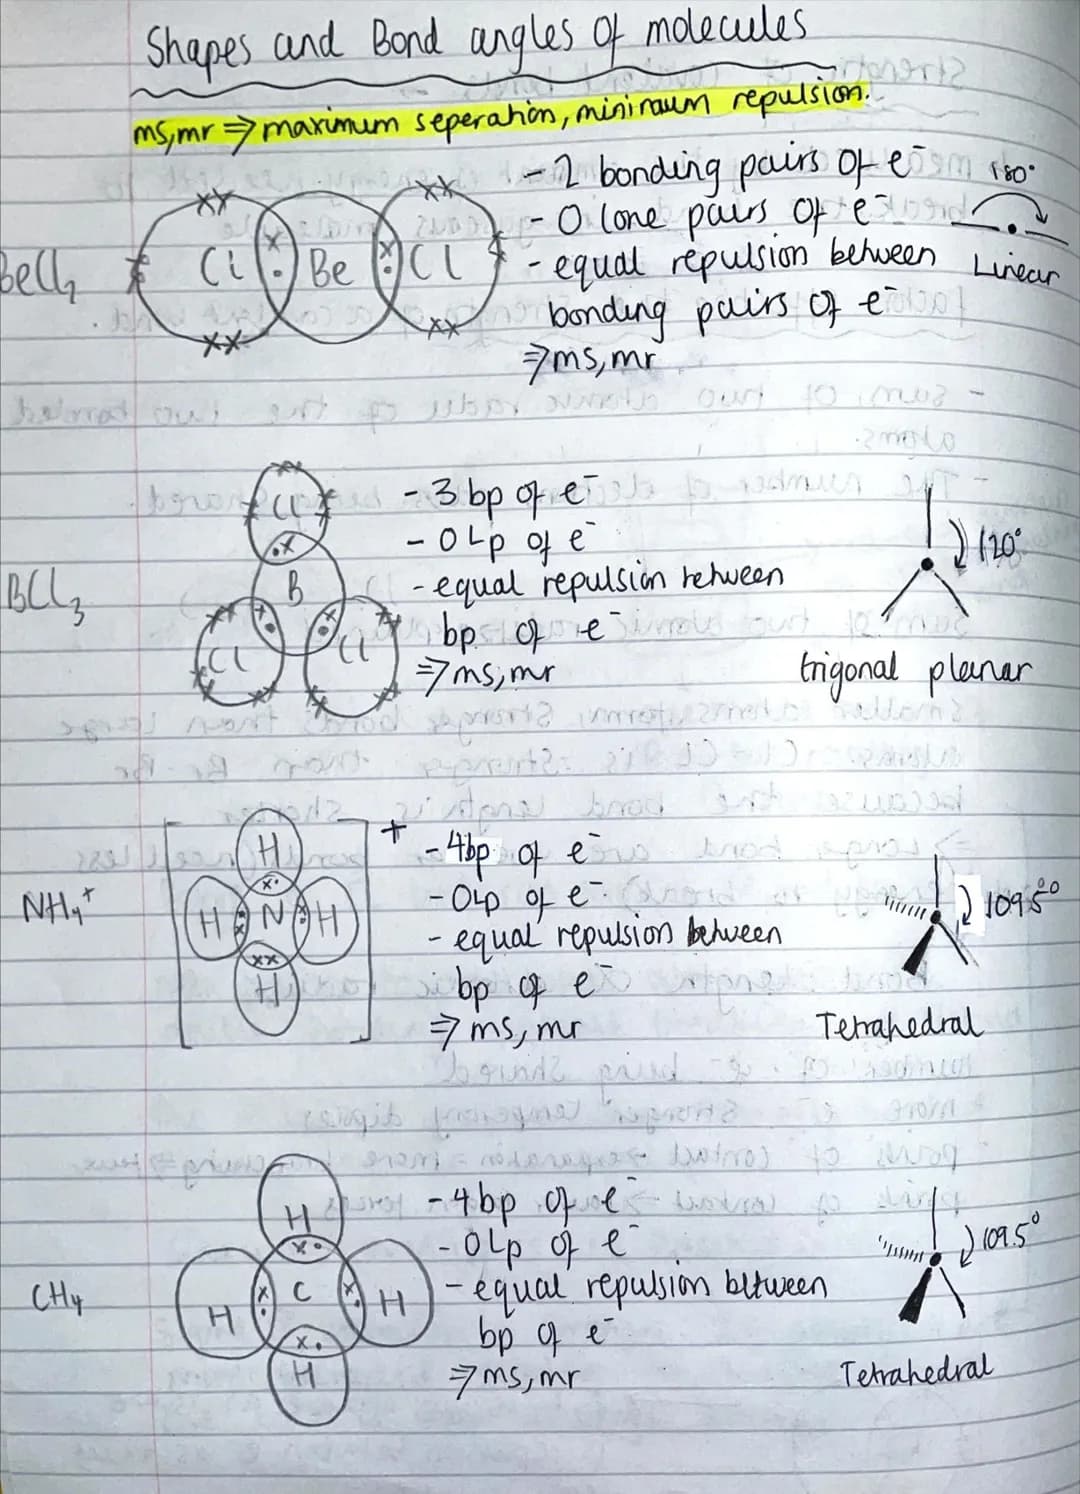 Shapes and Bond angles of molecules
ms,mr ⇒ maximum seperation, minimum repulsion.
BeCl2
Cl Be Cl
- 2 bonding pairs of e-
- 0 lone pairs of e-
- equal repulsion between
bonding pairs of e-
⇒ ms, mr
180°
Linear
BCl3
Cl
B
Cl Cl
- 3 bp of e-
- 0 Lp of e-
- equal repulsion between
bp of e-
⇒ ms, mr
120°
trigonal planar
NH4+
H
H N H
H
+
- 4bp of e-
- 0Lp of e-
- equal repulsion between
bp of e-
⇒ ms, mr
109.5°
Tetrahedral
CH4
H
H C H
H
- 4bp of e-
- 0Lp of e-
- equal repulsion between
bp of e-
⇒ ms, mr
109.5°
Tetrahedral